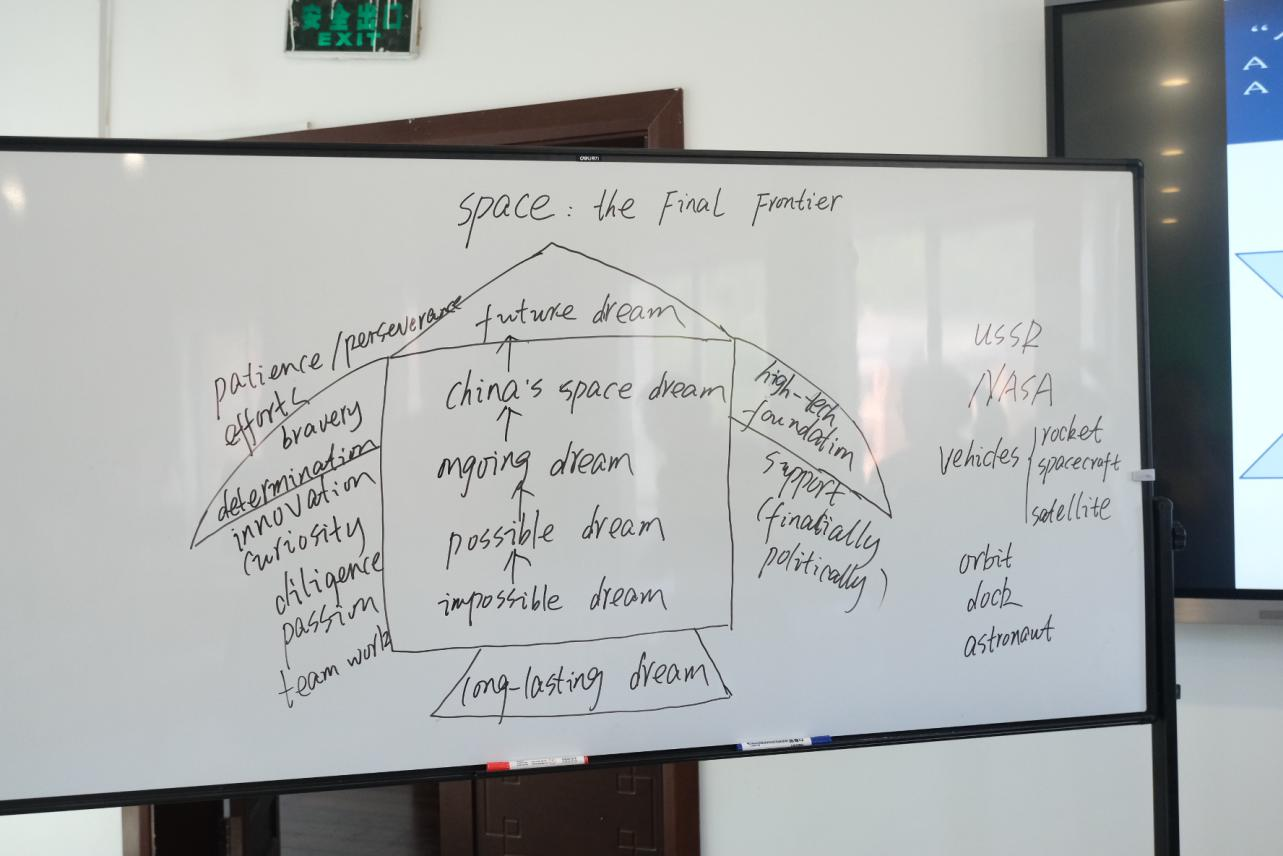 安全出口
EXIT
space: the Final Frontier
future dream
china's space dream
ongoing dream
possible dream
impossible dream
long-lasting dream
patience/perseverance
efforts
bravery
determination
innovation
curiosity
diligence
passion
team work
high-tech
foundation
support
(finatially
politically)
USSR
NASA
vehicles
rocket
spacecraft
satellite
orbit
dock
astronaut
“
A
A